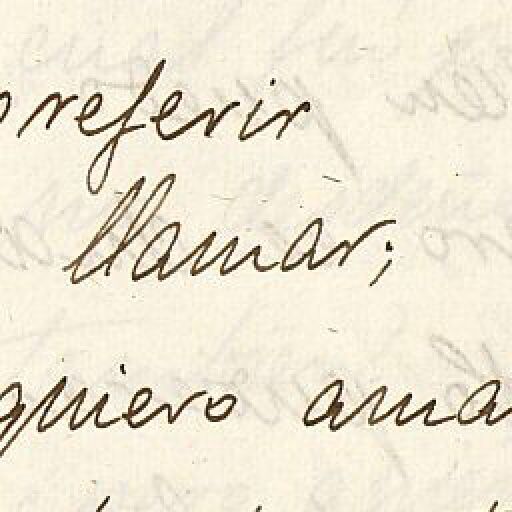 preferir
llamar;
quiero amar